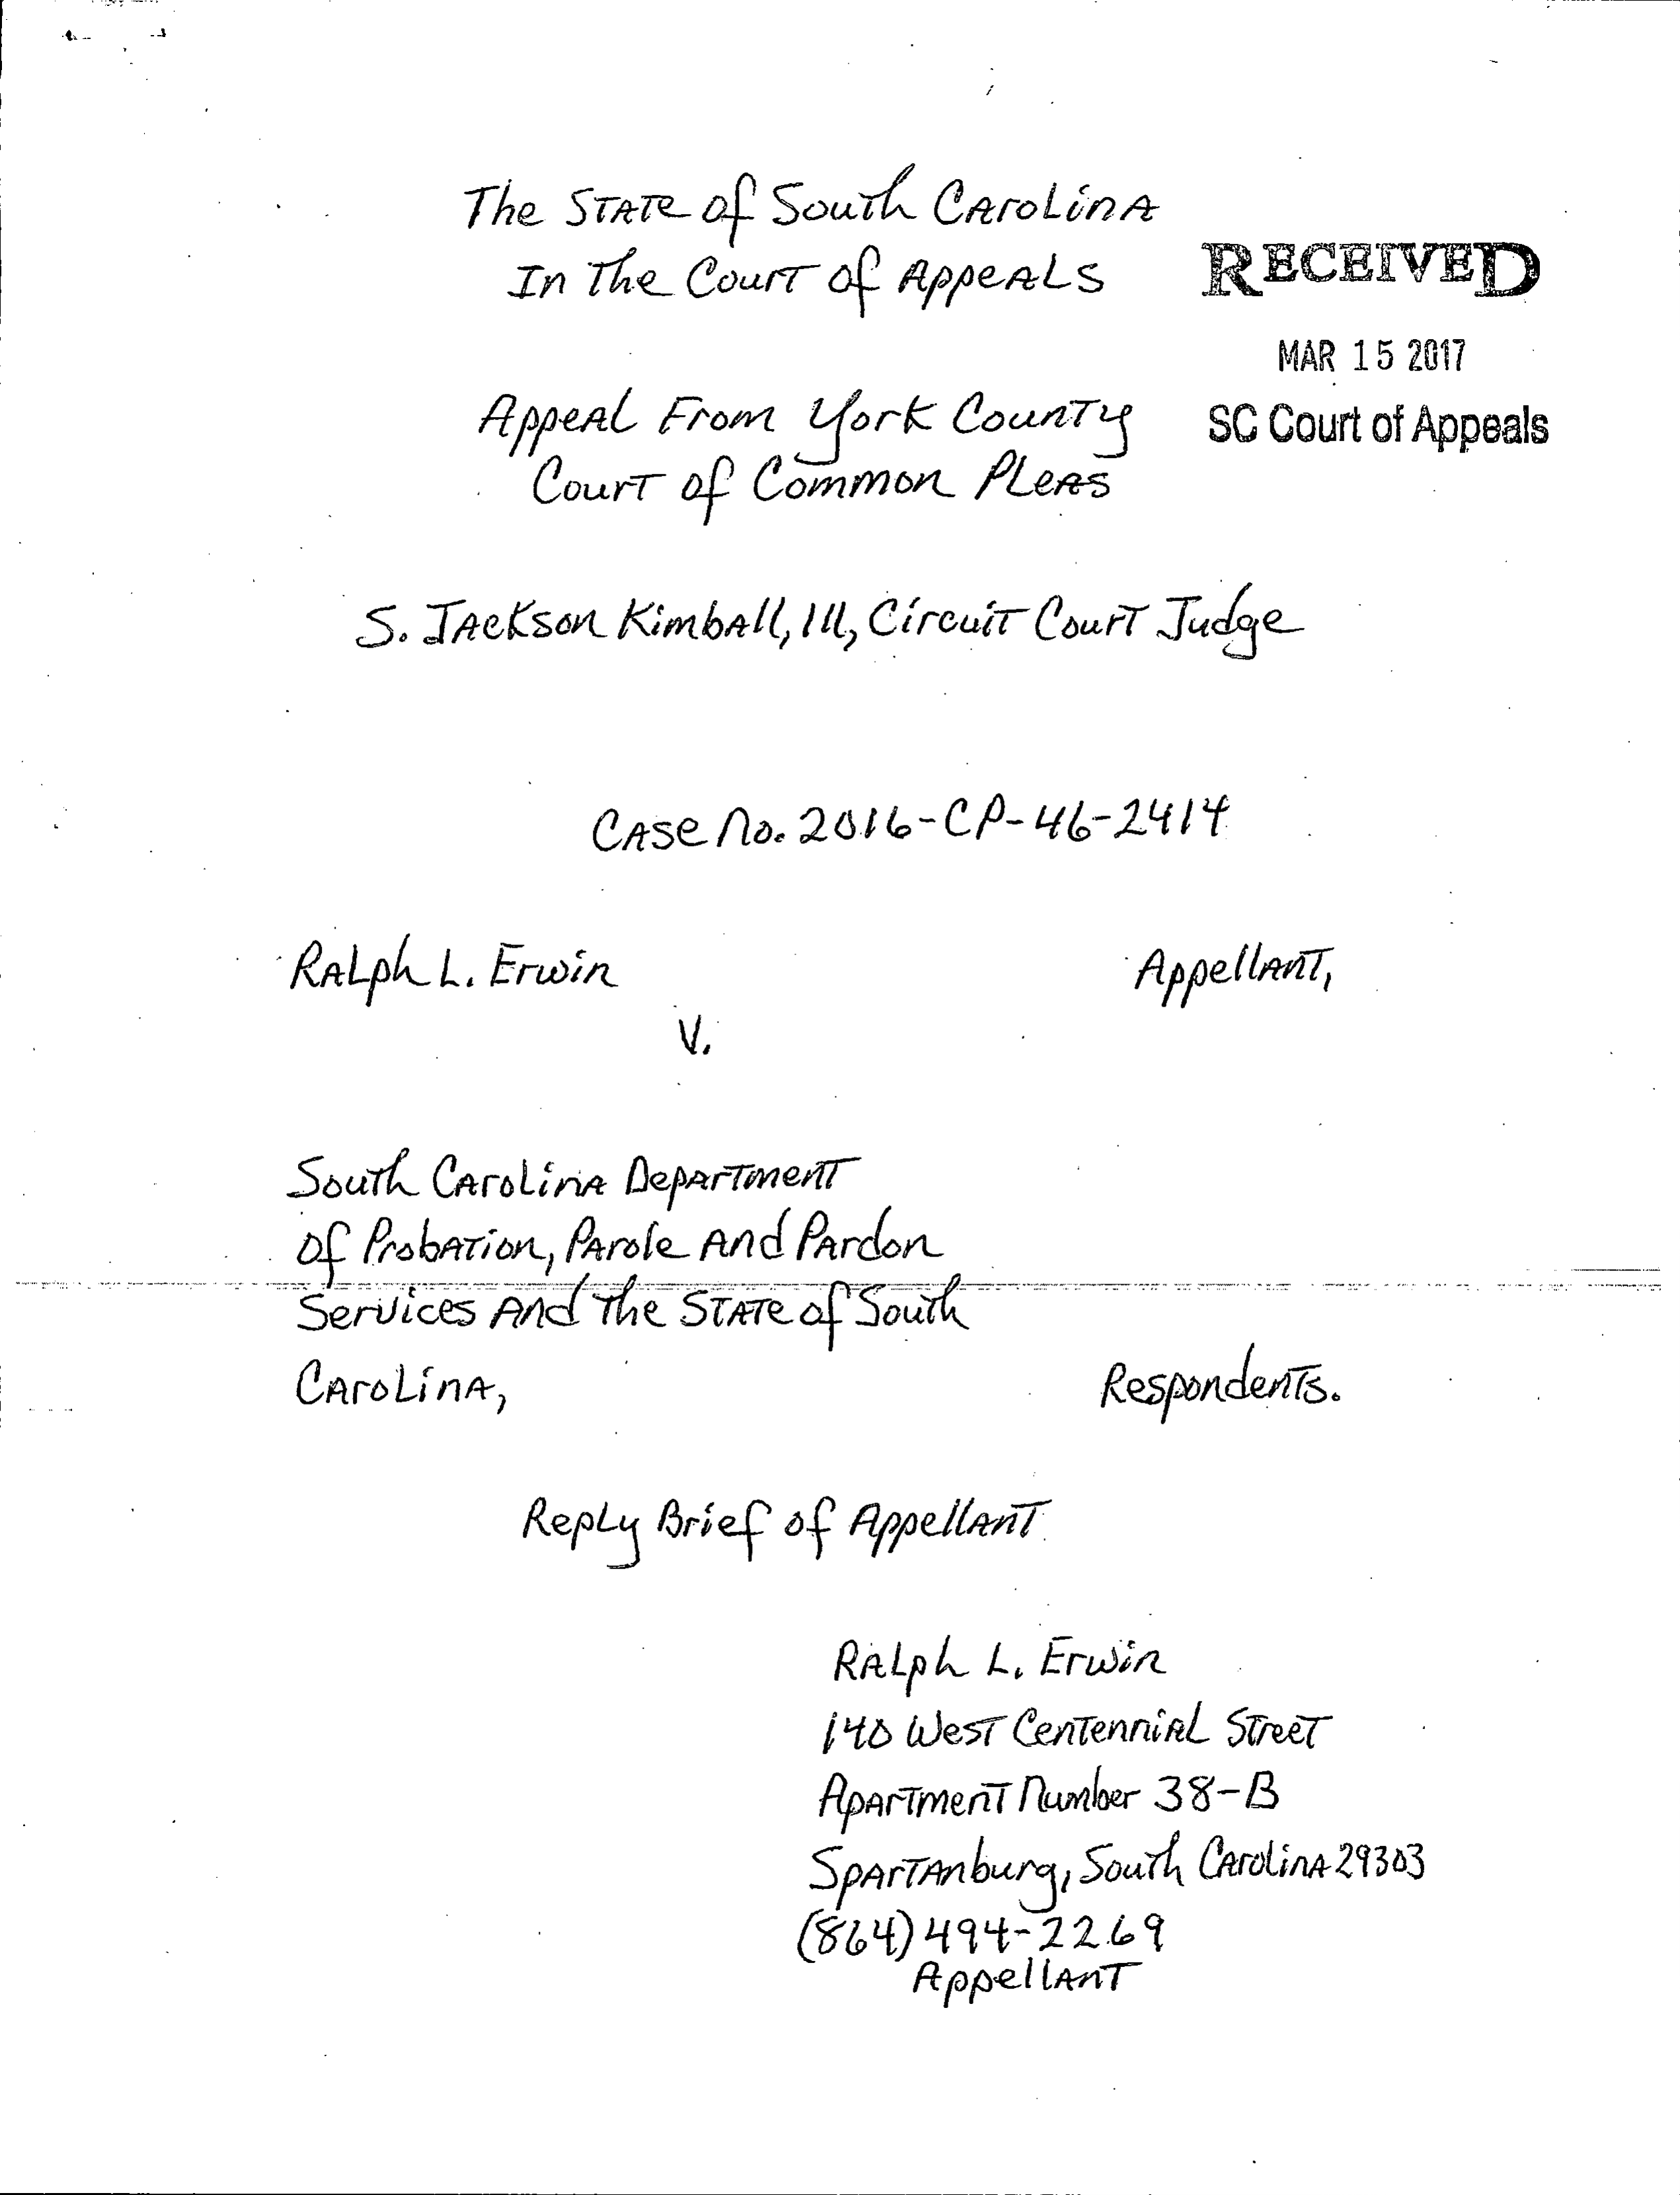 The State of South Carolina
In The Court of Appeals
RECEIVED
MAR 15 2017
SC Court of Appeals
Appeal From York County
Court of Common Pleas
S. Jackson Kimball, III, Circuit Court Judge
Case No. 2016-CP-46-2414
Ralph L. Erwin
Appellant,
V.
South Carolina Department
of Probation, Parole And Pardon
Services And The State of South
Carolina,
Respondents.
Reply Brief of Appellant
Ralph L. Erwin
140 West Centennial Street
Apartment Number 38-B
Spartanburg, South Carolina 29303
(864) 494-2269
Appellant